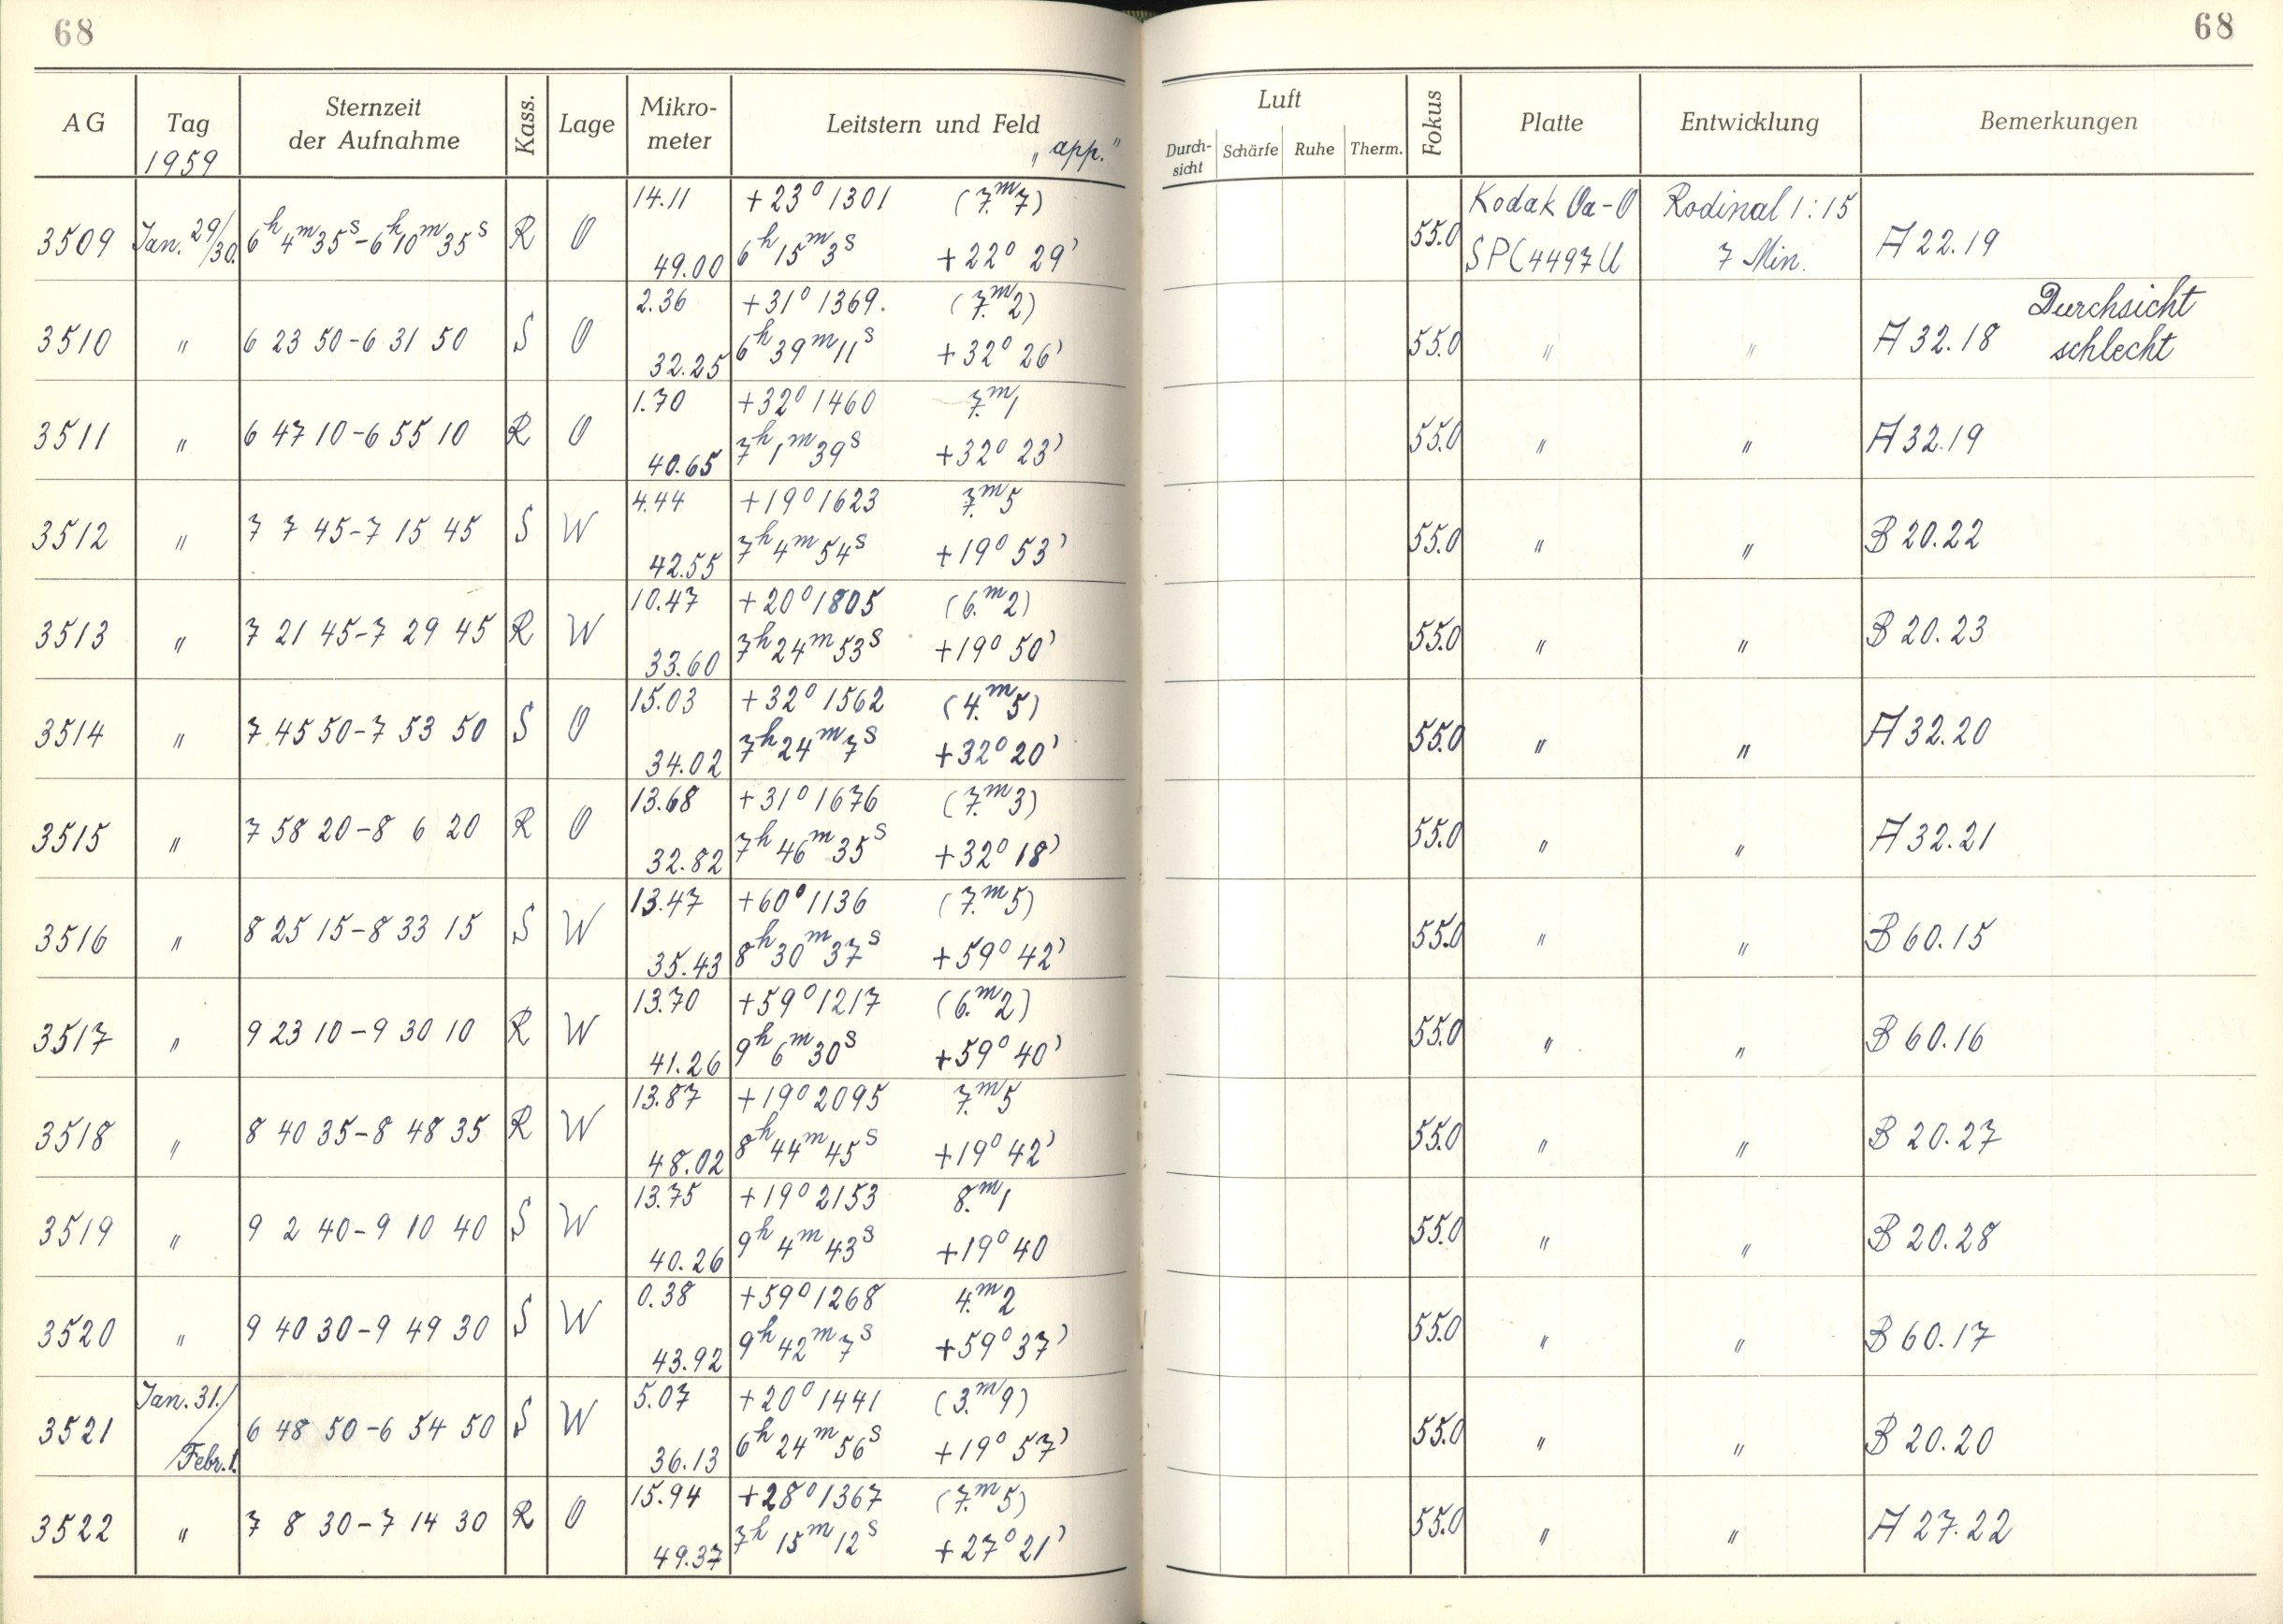 68
68
AG Tag Sternzeit der Aufnahme Kass. Lage Mikro-meter Leitstern und Feld Luft Durch-sicht Schärfe Ruhe Therm. Fokus Platte Entwicklung Bemerkungen
1959 „app.“
14.11 +23° 1301 (7.ᵐ7) Kodak Oa-O Rodinal 1:15
3509 Jan. 29/30. 6ʰ4ᵐ35ˢ-6ʰ10ᵐ35ˢ R O 49.00 6ʰ15ᵐ3ˢ +22° 29' 55.0 SPC4497U 7 Min. A 22.19
2.36 +31° 1369. (7.ᵐ2) Durchsicht
3510 " 6 23 50-6 31 50 S O 32.25 6ʰ39ᵐ11ˢ +32° 26' 55.0 " " A 32.18 schlecht
1.70 +32° 1460 7.ᵐ1
3511 " 6 47 10-6 55 10 R O 40.65 7ʰ1ᵐ39ˢ +32° 23' 55.0 " " A 32.19
4.44 +19° 1623 7.ᵐ5
3512 " 7 7 45-7 15 45 S W 42.55 7ʰ4ᵐ54ˢ +19° 53' 55.0 " " B 20.22
10.47 +20° 1805 (6.ᵐ2)
3513 " 7 21 45-7 29 45 R W 33.60 7ʰ24ᵐ53ˢ +19° 50' 55.0 " " B 20.23
15.03 +32° 1562 (4.ᵐ5)
3514 " 7 45 50-7 53 50 S O 34.02 7ʰ24ᵐ7ˢ +32° 20' 55.0 " " A 32.20
13.68 +31° 1676 (7.ᵐ3)
3515 " 7 58 20-8 6 20 R O 32.82 7ʰ46ᵐ35ˢ +32° 18' 55.0 " " A 32.21
13.47 +60° 1136 (7.ᵐ5)
3516 " 8 25 15-8 33 15 S W 35.43 8ʰ30ᵐ37ˢ +59° 42' 55.0 " " B 60.15
13.70 +59° 1217 (6.ᵐ2)
3517 " 9 23 10-9 30 10 R W 41.26 9ʰ6ᵐ30ˢ +59° 40' 55.0 " " B 60.16
13.87 +19° 2095 7.ᵐ5
3518 " 8 40 35-8 48 35 R W 48.02 8ʰ44ᵐ45ˢ +19° 42' 55.0 " " B 20.27
13.75 +19° 2153 8.ᵐ1
3519 " 9 2 40-9 10 40 S W 40.26 9ʰ4ᵐ43ˢ +19° 40 55.0 " " B 20.28
0.38 +59° 1268 4.ᵐ2
3520 " 9 40 30-9 49 30 S W 43.92 9ʰ42ᵐ7ˢ +59° 37' 55.0 " " B 60.17
Jan. 31./ 5.07 +20° 1441 (3.ᵐ9)
3521 Febr. 1. 6 48 50-6 54 50 S W 36.13 6ʰ24ᵐ56ˢ +19° 57' 55.0 " " B 20.20
15.94 +28° 1367 (7.ᵐ5)
3522 " 7 8 30-7 14 30 R O 49.37 7ʰ15ᵐ12ˢ +27° 21' 55.0 " " A 27.22